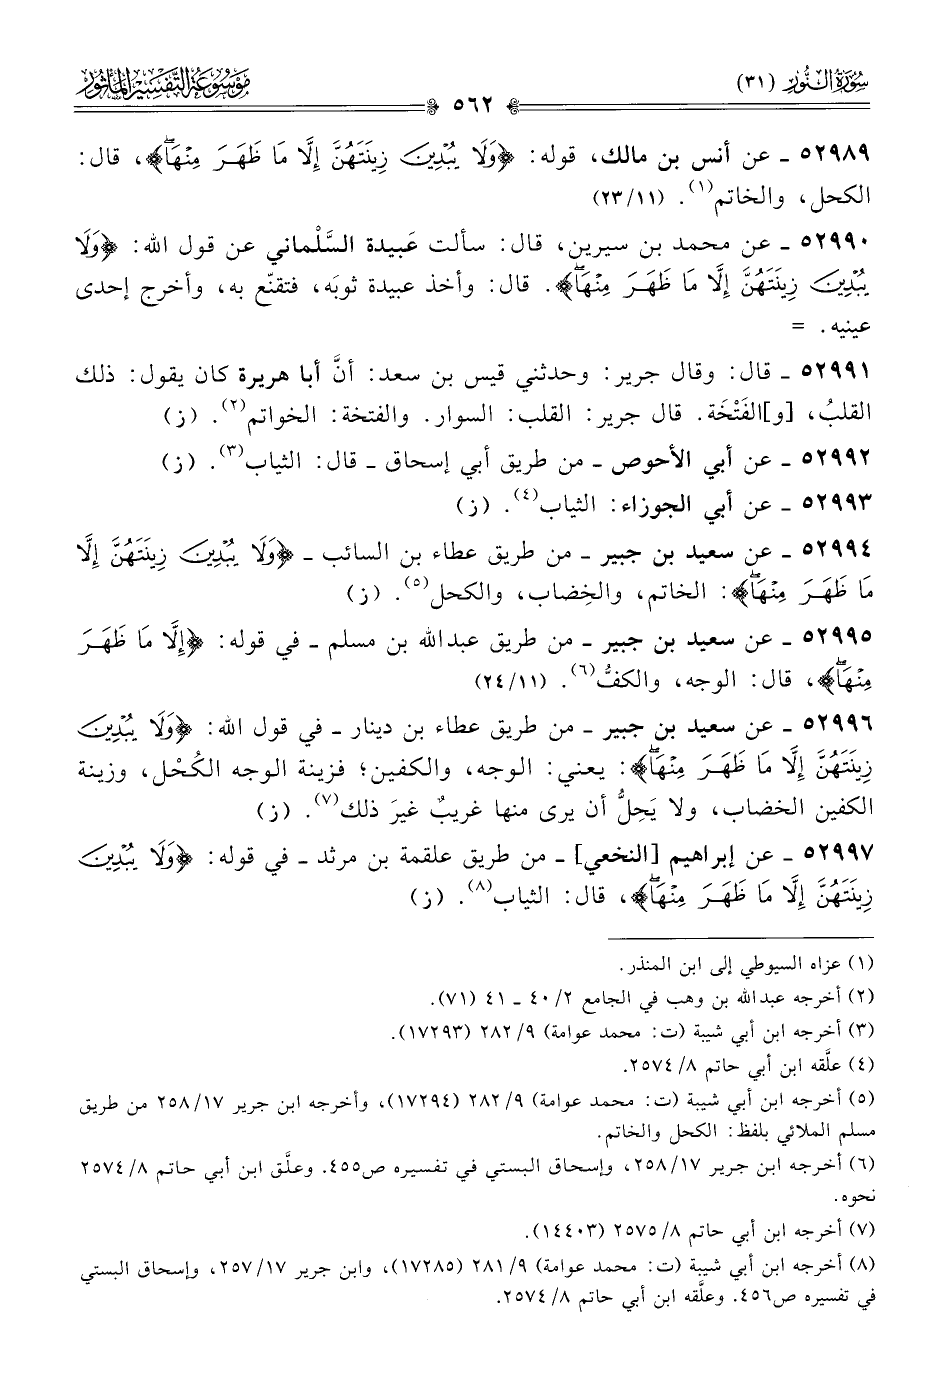 سُورَةُ النُّورِ (٣١)
٥٦٢
مَوْسُوعَةُ التَّفْسِيرِ المَأْثُورِ
٥٢٩٨٩ ـ عن أنس بن مالك، قوله: ﴿وَلَا يُبْدِينَ زِينَتَهُنَّ إِلَّا مَا ظَهَرَ مِنْهَاۖ﴾، قال:
الكحل، والخاتم(١). (١١/٢٣)
٥٢٩٩٠ ـ عن محمد بن سيرين، قال: سألت عَبيدة السَّلْماني عن قول الله: ﴿وَلَا
يُبْدِينَ زِينَتَهُنَّ إِلَّا مَا ظَهَرَ مِنْهَاۖ﴾. قال: وأخذ عبيدة ثوبَه، فتقنّع به، وأخرج إحدى
عينيه. =
٥٢٩٩١ ـ قال: وقال جرير: وحدثني قيس بن سعد: أنَّ أبا هريرة كان يقول: ذلك
القلبُ، [و]الفَتْخَة. قال جرير: القلب: السوار. والفتخة: الخواتم(٢). (ز)
٥٢٩٩٢ ـ عن أبي الأحوص ـ من طريق أبي إسحاق ـ قال: الثياب(٣). (ز)
٥٢٩٩٣ ـ عن أبي الجوزاء: الثياب(٤). (ز)
٥٢٩٩٤ ـ عن سعيد بن جبير ـ من طريق عطاء بن السائب ـ ﴿وَلَا يُبْدِينَ زِينَتَهُنَّ إِلَّا
مَا ظَهَرَ مِنْهَاۖ﴾: الخاتم، والخِضاب، والكحل(٥). (ز)
٥٢٩٩٥ ـ عن سعيد بن جبير ـ من طريق عبدالله بن مسلم ـ في قوله: ﴿إِلَّا مَا ظَهَرَ
مِنْهَاۖ﴾، قال: الوجه، والكفُّ(٦). (١١/٢٤)
٥٢٩٩٦ ـ عن سعيد بن جبير ـ من طريق عطاء بن دينار ـ في قول الله: ﴿وَلَا يُبْدِينَ
زِينَتَهُنَّ إِلَّا مَا ظَهَرَ مِنْهَاۖ﴾: يعني: الوجه، والكفين؛ فزينة الوجه الكُحْل، وزينة
الكفين الخضاب، ولا يَحِلُّ أن يرى منها غريبٌ غيرَ ذلك(٧). (ز)
٥٢٩٩٧ ـ عن إبراهيم [النخعي] ـ من طريق علقمة بن مرثد ـ في قوله: ﴿وَلَا يُبْدِينَ
زِينَتَهُنَّ إِلَّا مَا ظَهَرَ مِنْهَاۖ﴾، قال: الثياب(٨). (ز)
(١) عزاه السيوطي إلى ابن المنذر.
(٢) أخرجه عبدالله بن وهب في الجامع ٢/ ٤٠ ـ ٤١ (٧١).
(٣) أخرجه ابن أبي شيبة (ت: محمد عوامة) ٩/ ٢٨٢ (١٧٢٩٣).
(٤) علَّقه ابن أبي حاتم ٨/ ٢٥٧٤.
(٥) أخرجه ابن أبي شيبة (ت: محمد عوامة) ٩/ ٢٨٢ (١٧٢٩٤)، وأخرجه ابن جرير ١٧/ ٢٥٨ من طريق
مسلم الملائي بلفظ: الكحل والخاتم.
(٦) أخرجه ابن جرير ١٧/ ٢٥٨، وإسحاق البستي في تفسيره ص٤٥٥. وعلَّق ابن أبي حاتم ٨/ ٢٥٧٤
نحوه.
(٧) أخرجه ابن أبي حاتم ٨/ ٢٥٧٥ (١٤٤٠٣).
(٨) أخرجه ابن أبي شيبة (ت: محمد عوامة) ٩/ ٢٨١ (١٧٢٨٥)، وابن جرير ١٧/ ٢٥٧، وإسحاق البستي
في تفسيره ص٤٥٦. وعلَّقه ابن أبي حاتم ٨/ ٢٥٧٤.